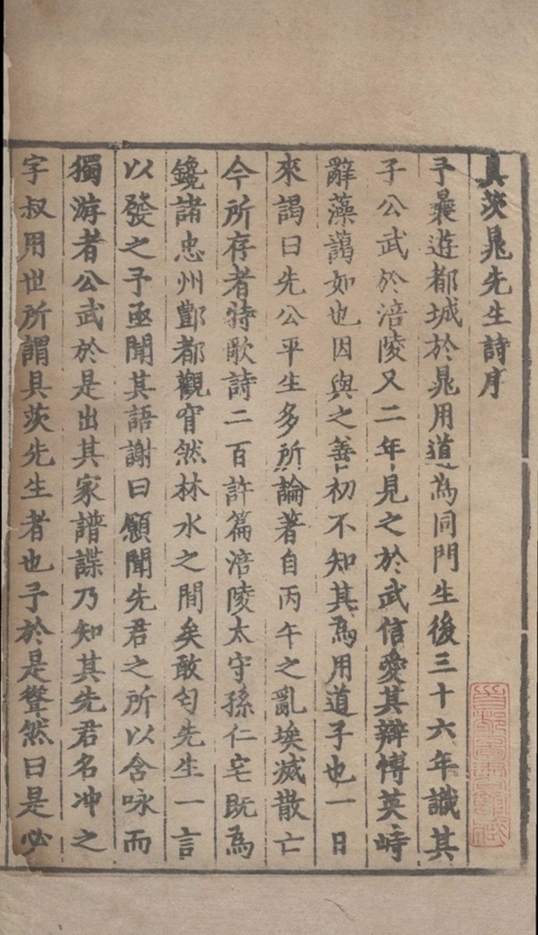 具茨晁先生詩序
予曩遊都城於晁用道為同門生後三十六年識其
子公武於涪陵又二年見之於武信愛其辯博英峙
辭藻蔼如也因與之善初不知其為用道子也一日
來謁曰先公平生多所論著自丙午之亂埃滅散亡
今所存者特歌詩二百許篇涪陵太守孫仁宅既為
鑱諸忠州酆都觀窅然林水之間矣敢匄先生一言
以發之予亟聞其語謝曰願聞先君之所以含咏而
獨游者公武於是出其家譜諜乃知其先君名冲之
字叔用世所謂具茨先生者也予於是聳然曰是必